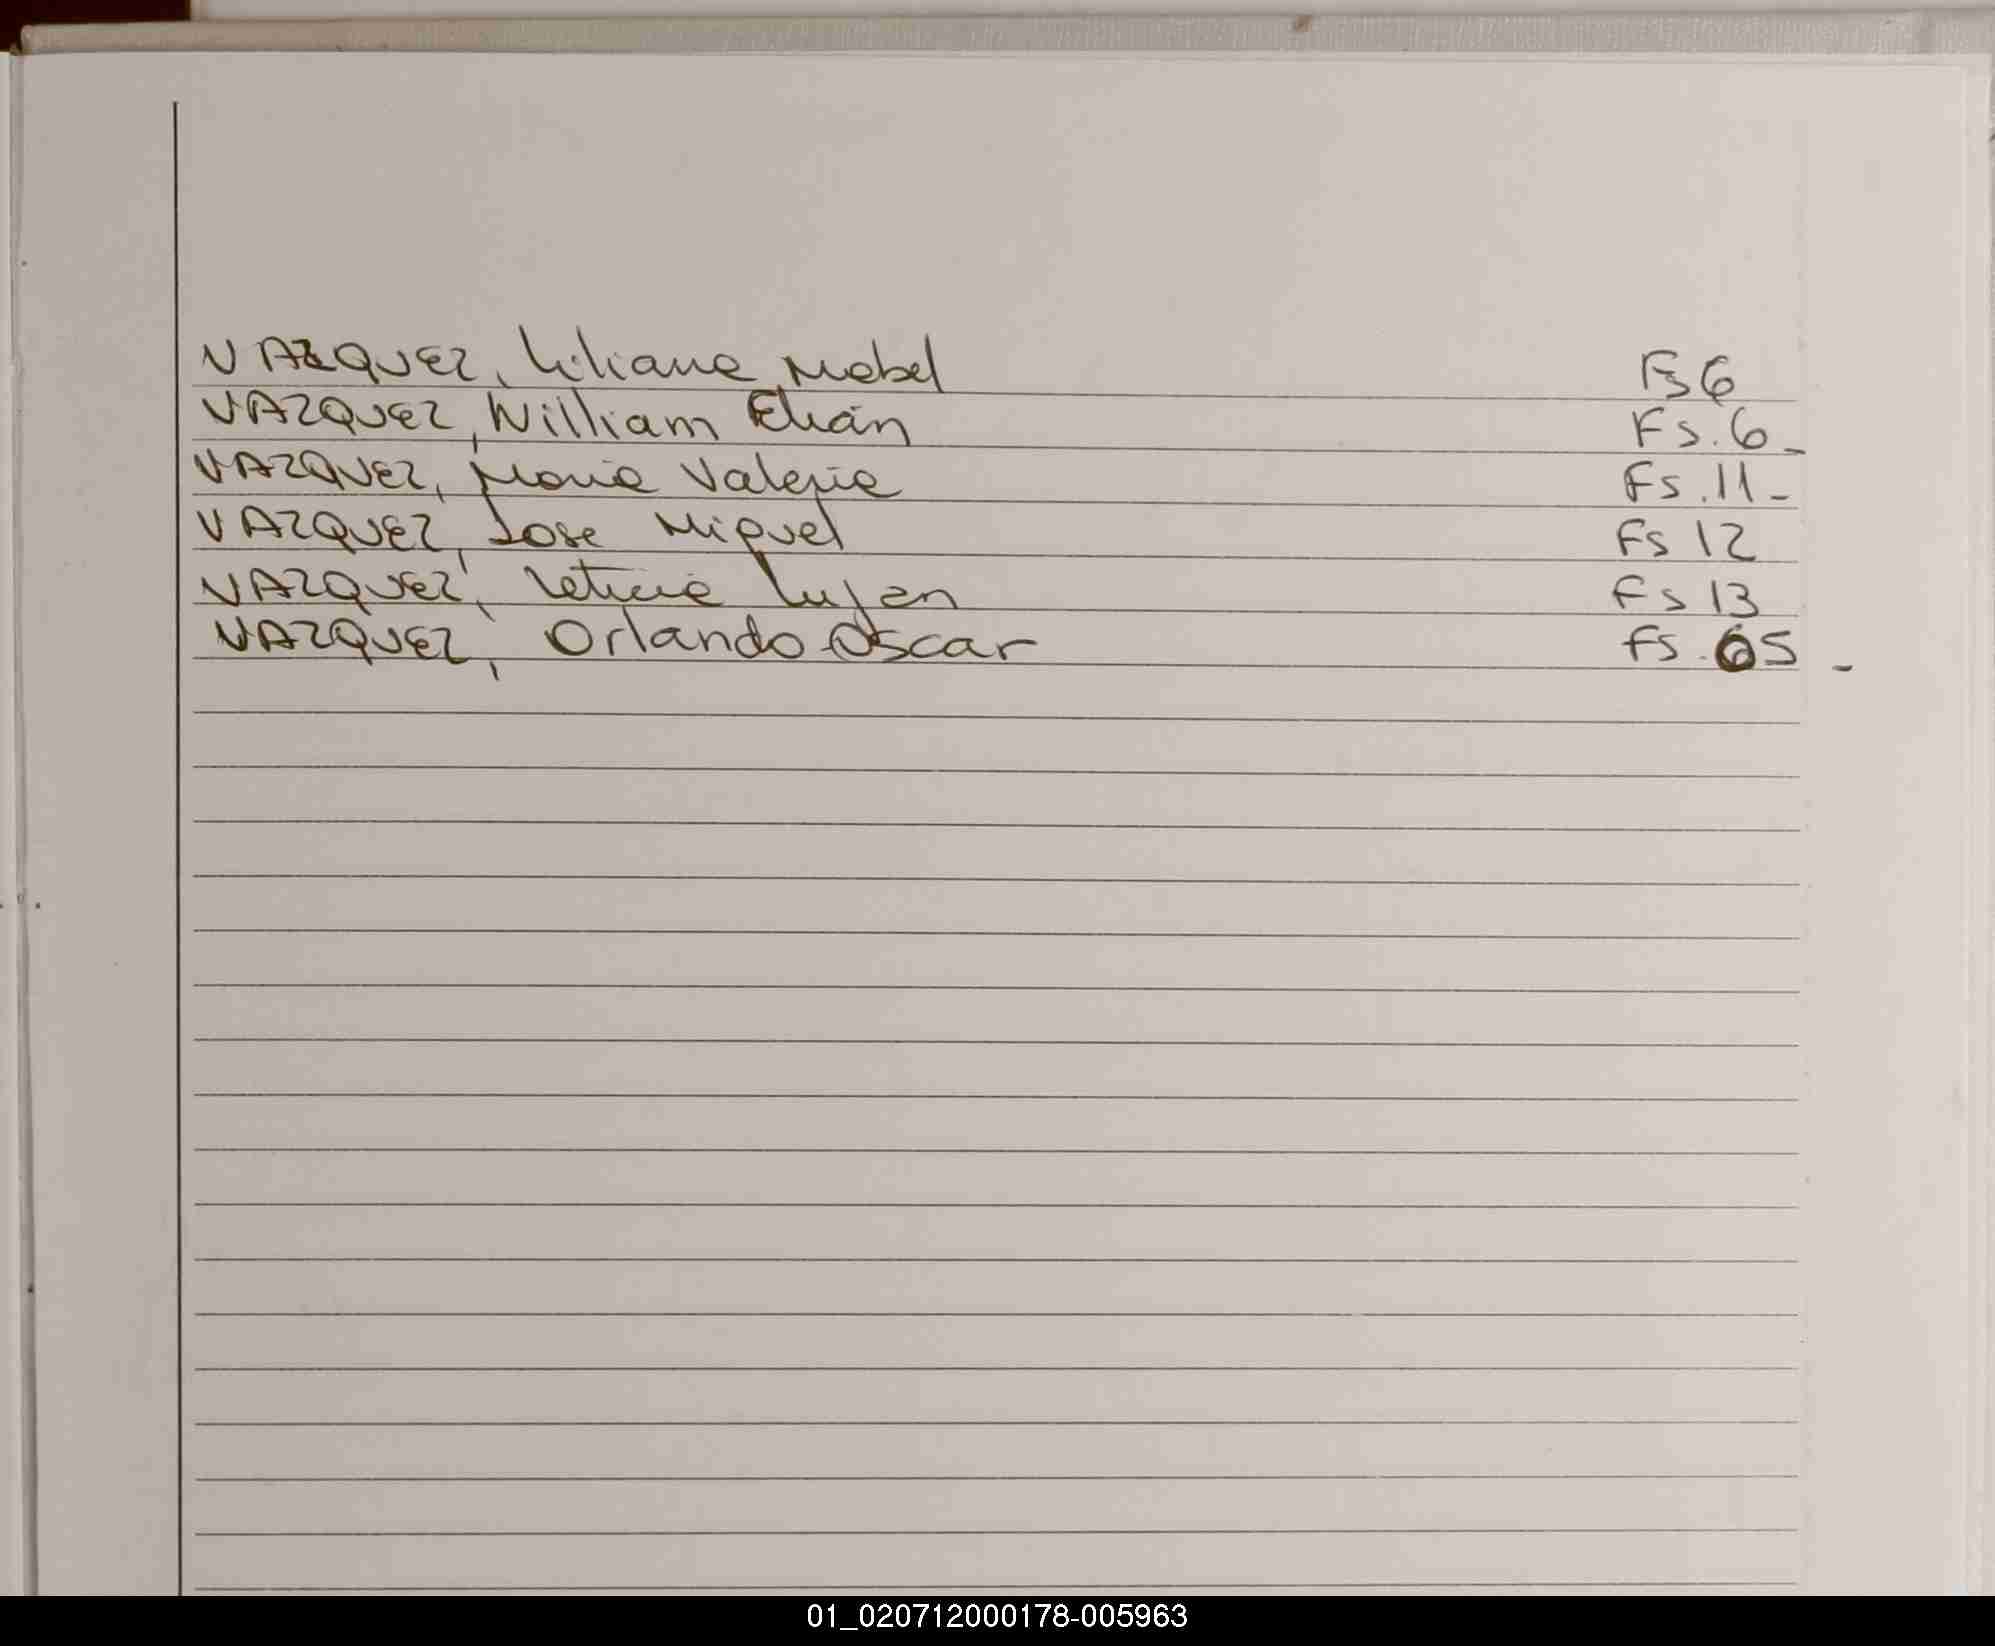 VAZQUEZ, Liliana Mabel Fs 6
VAZQUEZ, William Elián Fs. 6_
VAZQUEZ, Maria Valeria Fs. 11-
VAZQUEZ, Jose Miguel Fs 12
VAZQUEZ, Leticia Lujan Fs 13
VAZQUEZ, Orlando Oscar Fs. 65-
01_020712000178-005963